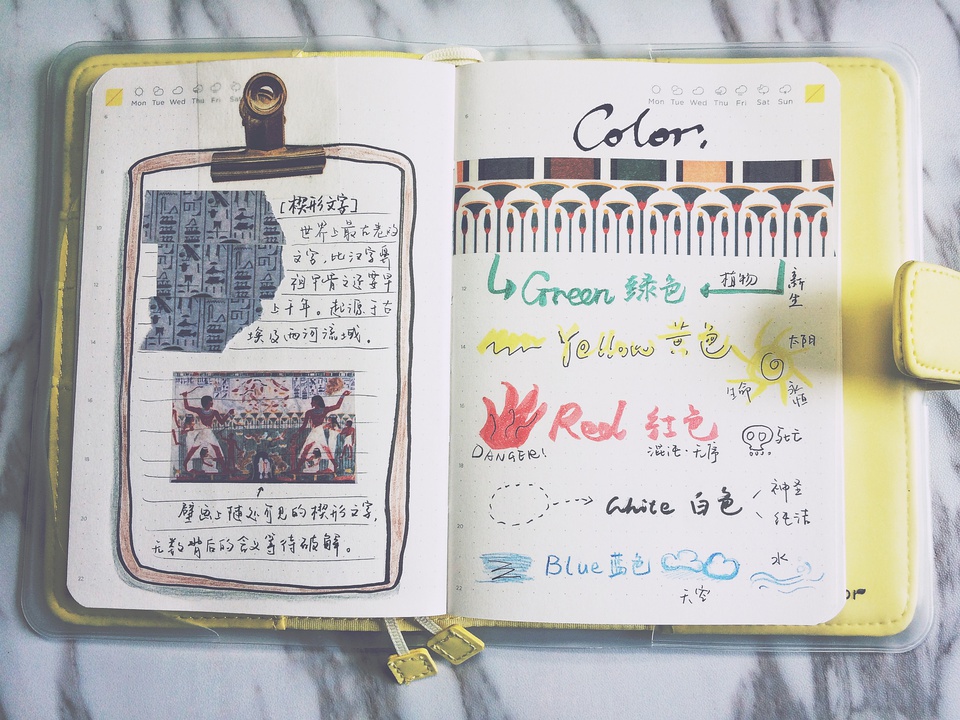 Mon Tue Wed Thu Fri Sa
[楔形文字]
世界上最古老的
文字,比汉字要
祖甲骨文还要早
上千年。起源于古
埃及两河流域。
壁画上随处可见的楔形文字,
无数背后的含义等待破解。
Mon Tue Wed Thu Fri Sat Sun
Color.
Green 绿色 植物 新生
Yellow 黄色 太阳
生命 永恒
Red 红色
DANGER! 混沌·无序 死亡
White 白色 神圣
纯洁
Blue 蓝色 水
天空
or